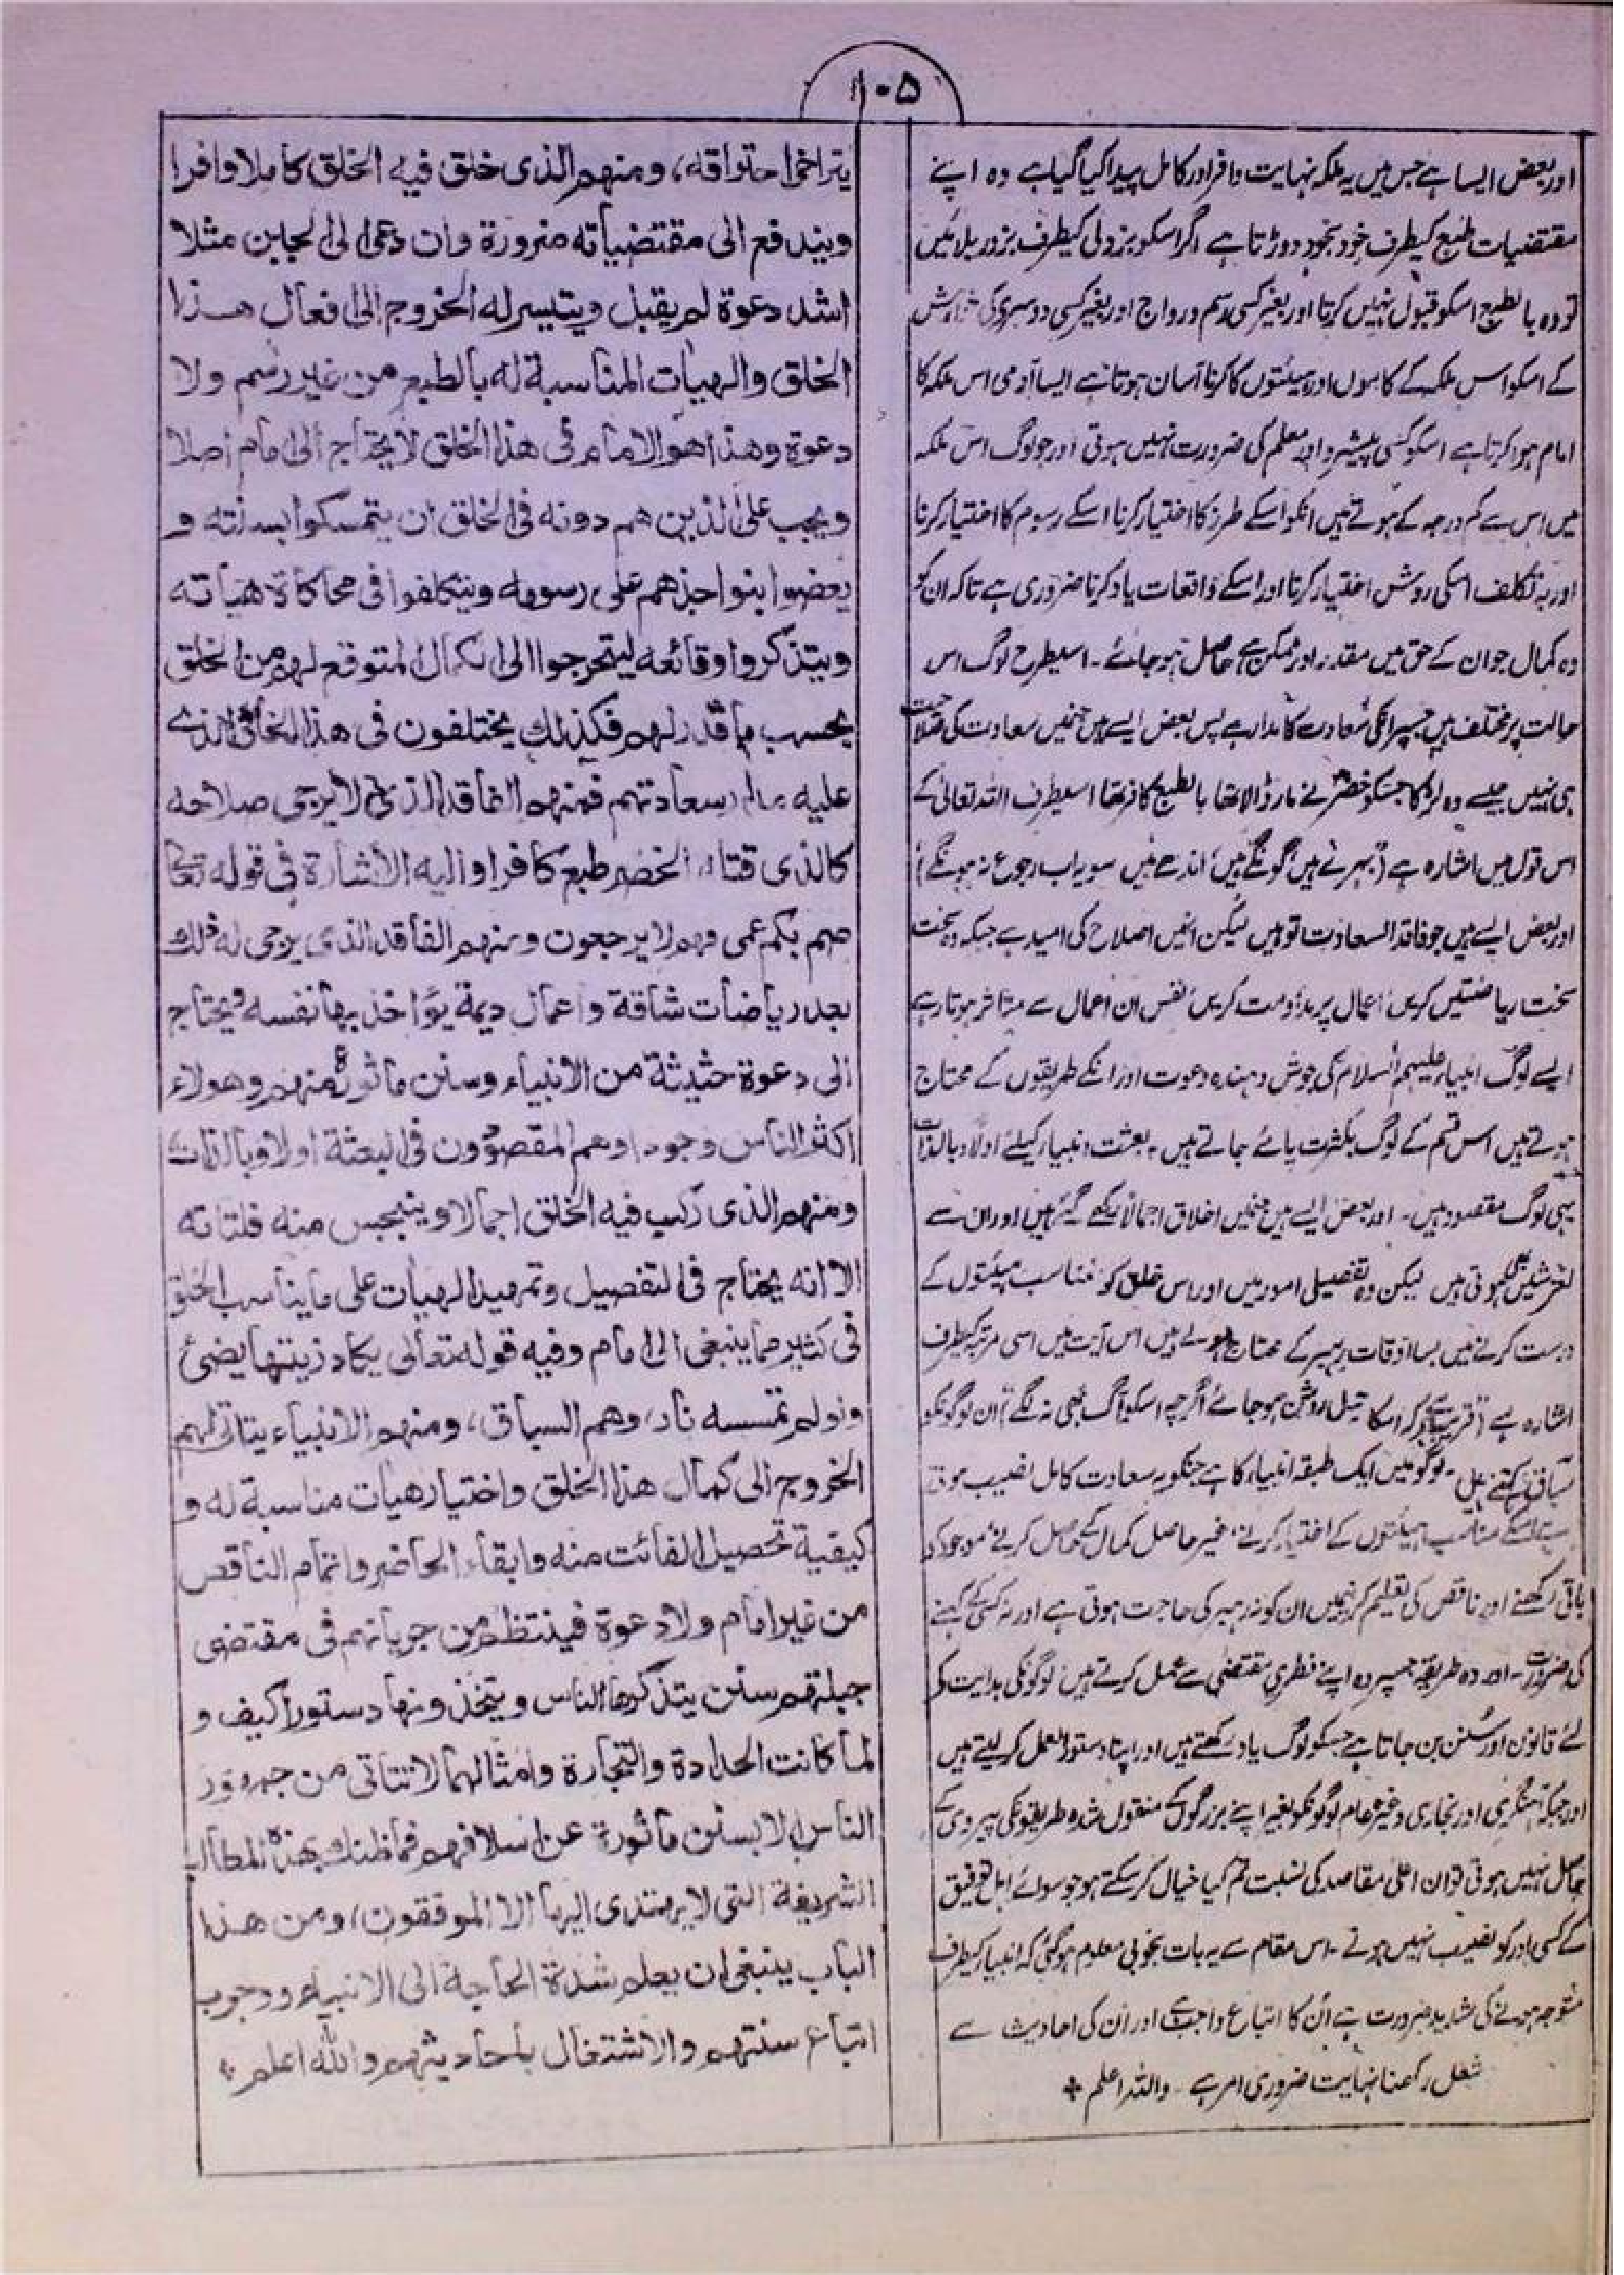 ۱۰۵
اور بعض ایسا ہے جس میں یہ ملکہ نہایت وافر اور کامل پیدا کیا گیا ہے وہ اپنے
مقتضیات طبع کیطرف خود بخود دوڑتا ہے اگر اسکو بزدلی کیطرف بزور بلائیں
تو وہ بالطبع اسکو قبول نہیں کرتا اور بغیر کسی رسم و رواج اور بغیر کسی دوسرے کی
کے اسکو اس ملکہ کے کاموں اور ہیئتوں کا کرنا آسان ہوتا ہے ایسا آدمی اس ملکہ کا
امام ہوا کرتا ہے اسکو کسی پیشرو اور معلم کی ضرورت نہیں ہوتی اور جو لوگ اس ملکہ
میں اس سے کم درجہ کے ہوتے ہیں انکو اسکے طرز کا اختیار کرنا اسکے رسوم کا اختیار کرنا
اور بہ تکلف اسکی روش اختیار کرنا اور اسکے واقعات یاد کرنا ضروری ہے تاکہ ان کو
وہ کمال جو ان کے حق میں مقدر اور ممکن ہے حاصل ہو جائے۔ اسیطرح لوگ اس
حالت پر مختلف ہیں جسپر انکی سعادت کا مدار ہے پس بعض ایسے ہیں جنمیں سعادت کی صلاحیت
ہی نہیں جیسے وہ لڑکا جسکو خضرؑ نے مار ڈالا تھا بالطبع کافر تھا اسیطرف اللہ تعالیٰ کے
اس قول میں اشارہ ہے (بہرے ہیں گونگے ہیں اندھے ہیں سو یہ اب رجوع نہ ہونگے)
اور بعض ایسے ہیں جو فاقد السعادت تو ہیں لیکن انمیں اصلاح کی امید ہے جبکہ وہ سخت
سخت ریاضتیں کریں اعمال پر مداومت کریں نفس ان اعمال سے متاثر ہوتا رہے
ایسے لوگ انبیاء علیہم السلام کی جوش دہندہ دعوت اور انکے طریقوں کے محتاج
ہوتے ہیں اس قسم کے لوگ بکثرت پائے جاتے ہیں۔ بعثت انبیاء کیلئے اولاد بالذات
یہی لوگ مقصود ہیں۔ اور بعض ایسے ہیں جنمیں اخلاق اجمالاً رکھے گئے ہیں اور ان سے
لغزشیں بھی ہوتی ہیں لیکن وہ تفصیلی امور میں اور اس خلق کو مناسب ہیئتوں کے
درست کرنے میں بسا اوقات رہبر کے محتاج ہوتے ہیں اس آیت میں اسی مرتبہ کیطرف
اشارہ ہے (قریب ہے کہ اسکا تیل روشن ہو جائے اگرچہ اسکو آگ بھی نہ لگے) ان لوگونکو
سباق کہتے ہیں۔ لوگو میں ایک طبقہ انبیاء کا ہے جنکو یہ سعادت کامل نصیب ہوتی
اسکے مناسب ہیئتوں کے اختیار کرنے غیر حاصل کمال کے حاصل کرنے موجود کو
باقی رکھنے اور ناقص کی تعلیم کرنیمیں ان کو نہ رہبر کی حاجت ہوتی ہے اور نہ کسی کے کہنے
کی ضرورت۔ اور وہ طریقہ جسپر وہ اپنے فطری مقتضی سے عمل کرتے ہیں لوگونکی ہدایت کے
لئے قانون اور سنن بن جاتا ہے جسکو لوگ یاد رکھتے ہیں اور اپنا دستور العمل کر لیتے ہیں
اور جبکہ آہنگری اور نجاری وغیرہ عام لوگونکو بغیر اپنے بزرگوں کے منقول شدہ طریقونکی پیروی کے
حاصل نہیں ہوتی تو ان اعلیٰ مقاصد کی نسبت تم کیا خیال کر سکتے ہو جو سوائے اہل توفیق
کے کسی اور کو نصیب نہیں ہوتے۔ اس مقام سے یہ بات بخوبی معلوم ہو گئی کہ انبیاء کیطرف
متوجہ ہونے کی شدید ضرورت ہے اُن کا اتباع واجب ہے اور ان کی احادیث سے
شغل رکھنا نہایت ضروری امر ہے۔ واللہ اعلم *
یتراخوا حتواقه، ومنهم الذی خلق فیه الخلق کاملا وافرا
ویندفع الی مقتضیاته ضرورة وان دعی الی الجبن مثلا
اشد دعوة لم یقبل ویتیسر له الخروج الی افعال هذا
الخلق والهیأت المناسبة له بالطبع من غیر رسم ولا
دعوة وهذا هو الامام فی هذا الخلق لا یحتاج الی امام اصلا
ویجب علی الذین هم دونه فی الخلق ان یتمسکوا بسنته و
یعضوا بنواجذهم علی رسومه ویتکلفوا فی محاکاة هیأته
ویتذکروا وقائعه لیتخرجوا الی الکمال المتوقع لهم من الخلق
بحسب ما قدر لهم فکذلک یختلفون فی هذا الخلق الذی
علیه مدار سعادتهم فمنهم الفاقد الذی لا یرجی صلاحه
کالذی قتله الخضر طبع کافرا والیه الاشارة فی قوله تعالی
صم بکم عمی فهم لا یرجعون ومنهم الفاقد الذی یرجی له ذلک
بعد ریاضات شاقة واعمال دیمة یؤاخذ بها نفسه ویحتاج
الی دعوة حثیثة من الانبیاء وسنن ماثورة منهم وهولاء
اکثر الناس وجودا وهم المقصودون فی البعثة اولا وبالذات
ومنهم الذی رکب فیه الخلق اجمالا وینبجس منه فلتاته
الا انه یحتاج فی التفصیل وتمهید الهیأت علی ما یناسب الخلق
فی کثیر مما ینبغی الی امام وفیه قوله تعالی یکاد زیتها یضئ
ولو لم تمسسه نار، وهم السباق، ومنهم الانبیاء یتاتی لهم
الخروج الی کمال هذا الخلق واختیار هیأت مناسبة له و
کیفیة تحصیل الفائت منه وابقاء الحاضر واتمام الناقص
من غیر امام ولا دعوة فینتظم من جریانهم فی مقتضی
جبلتهم سنن یتذکرها الناس ویتخذونها دستورا کیف و
لما کانت الحدادة والتجارة وامثالهما لا تتاتی من جمهور
الناس الا بسنن مأثورة عن اسلافهم فما ظنک بهذه المطالب
الشریفة التی لا یهتدی الیها الا الموفقون، ومن هذا
الباب ینبغی ان یعلم شدة الحاجة الی الانبیاء ووجوب
اتباع سنتهم والاشتغال باحادیثهم والله اعلم *